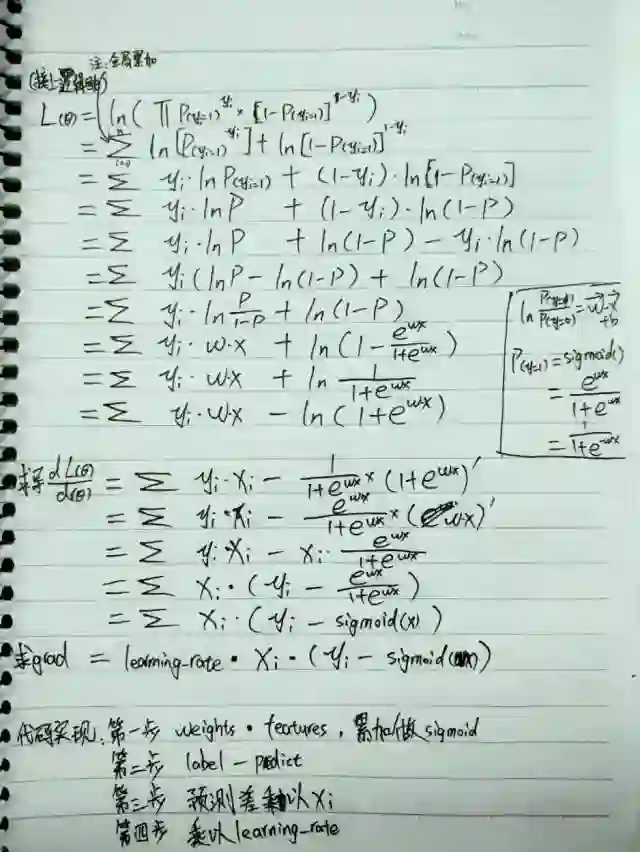 注:全局累加
(接上逻辑回归)
L(θ) = ln( ∏ P(yi=1)^yi × [1-P(yi=1)]^1-yi )
= ∑ ln[P(yi=1)^yi] + ln[1-P(yi=1)]^1-yi
= ∑ yi·lnP(yi=1) + (1-yi)·ln[1-P(yi=1)]
= ∑ yi·lnP + (1-yi)·ln(1-P)
= ∑ yi·lnP + ln(1-P) - yi·ln(1-P)
= ∑ yi(lnP - ln(1-P)) + ln(1-P)
= ∑ yi·ln P/(1-P) + ln(1-P)
= ∑ yi·w·x + ln(1 - e^wx/(1+e^wx))
= ∑ yi·w·x + ln 1/(1+e^wx)
= ∑ yi·w·x - ln(1+e^wx)
ln P(y=1)/P(y=0) = w·x
+b
P(y=1) = sigmoid()
= e^wx/(1+e^wx)
= 1/(1+e^-wx)
求导 dL(θ)/d(θ) = ∑ yi·xi - 1/(1+e^wx) × (1+e^wx)′
= ∑ yi·xi - e^wx/(1+e^wx) × (wx)′
= ∑ yi·xi - xi·e^wx/(1+e^wx)
= ∑ xi·(yi - e^wx/(1+e^wx))
= ∑ xi·(yi - sigmoid(x))
求grad = learning_rate · xi·(yi - sigmoid(x))
代码实现: 第一步 weights · features, 累加做sigmoid
第二步 label - predict
第三步 预测差乘以xi
第四步 乘以learning_rate